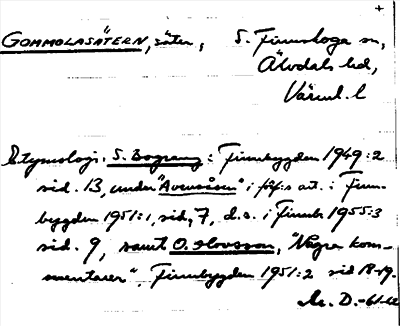 +
GOMMOLASÄTERN, säter, S. Finnskoga sn,
Älvdals hd,
Värml. l
Etymologi: S. Bograng: Finnbygden 1949:2
sid. 13, under "Avundsåsen" i förf:s art. i Finn-
bygden 1951:1, sid. 7, d.s. i Finnb 1955:3
sid. 9, samt O. Hovsson, "Några kom-
mentarer", Finnbygden 1951:2 sid 18-19.